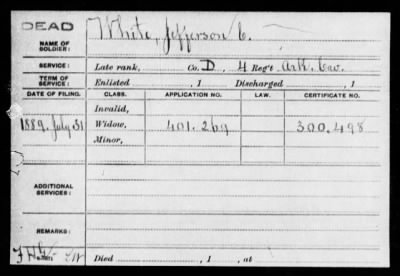 DEAD
NAME OF SOLDIER: White, Jefferson C.
SERVICE: Late rank, Co. D, 4 Reg't Ark. Cav.
TERM OF SERVICE: Enlisted , 1 Discharged , 1
DATE OF FILING. CLASS. APPLICATION NO. LAW. CERTIFICATE NO.
Invalid,
1889. July 31 Widow, 401.269 300.498
Minor,
ADDITIONAL SERVICES:
REMARKS:
Died , 1 , at